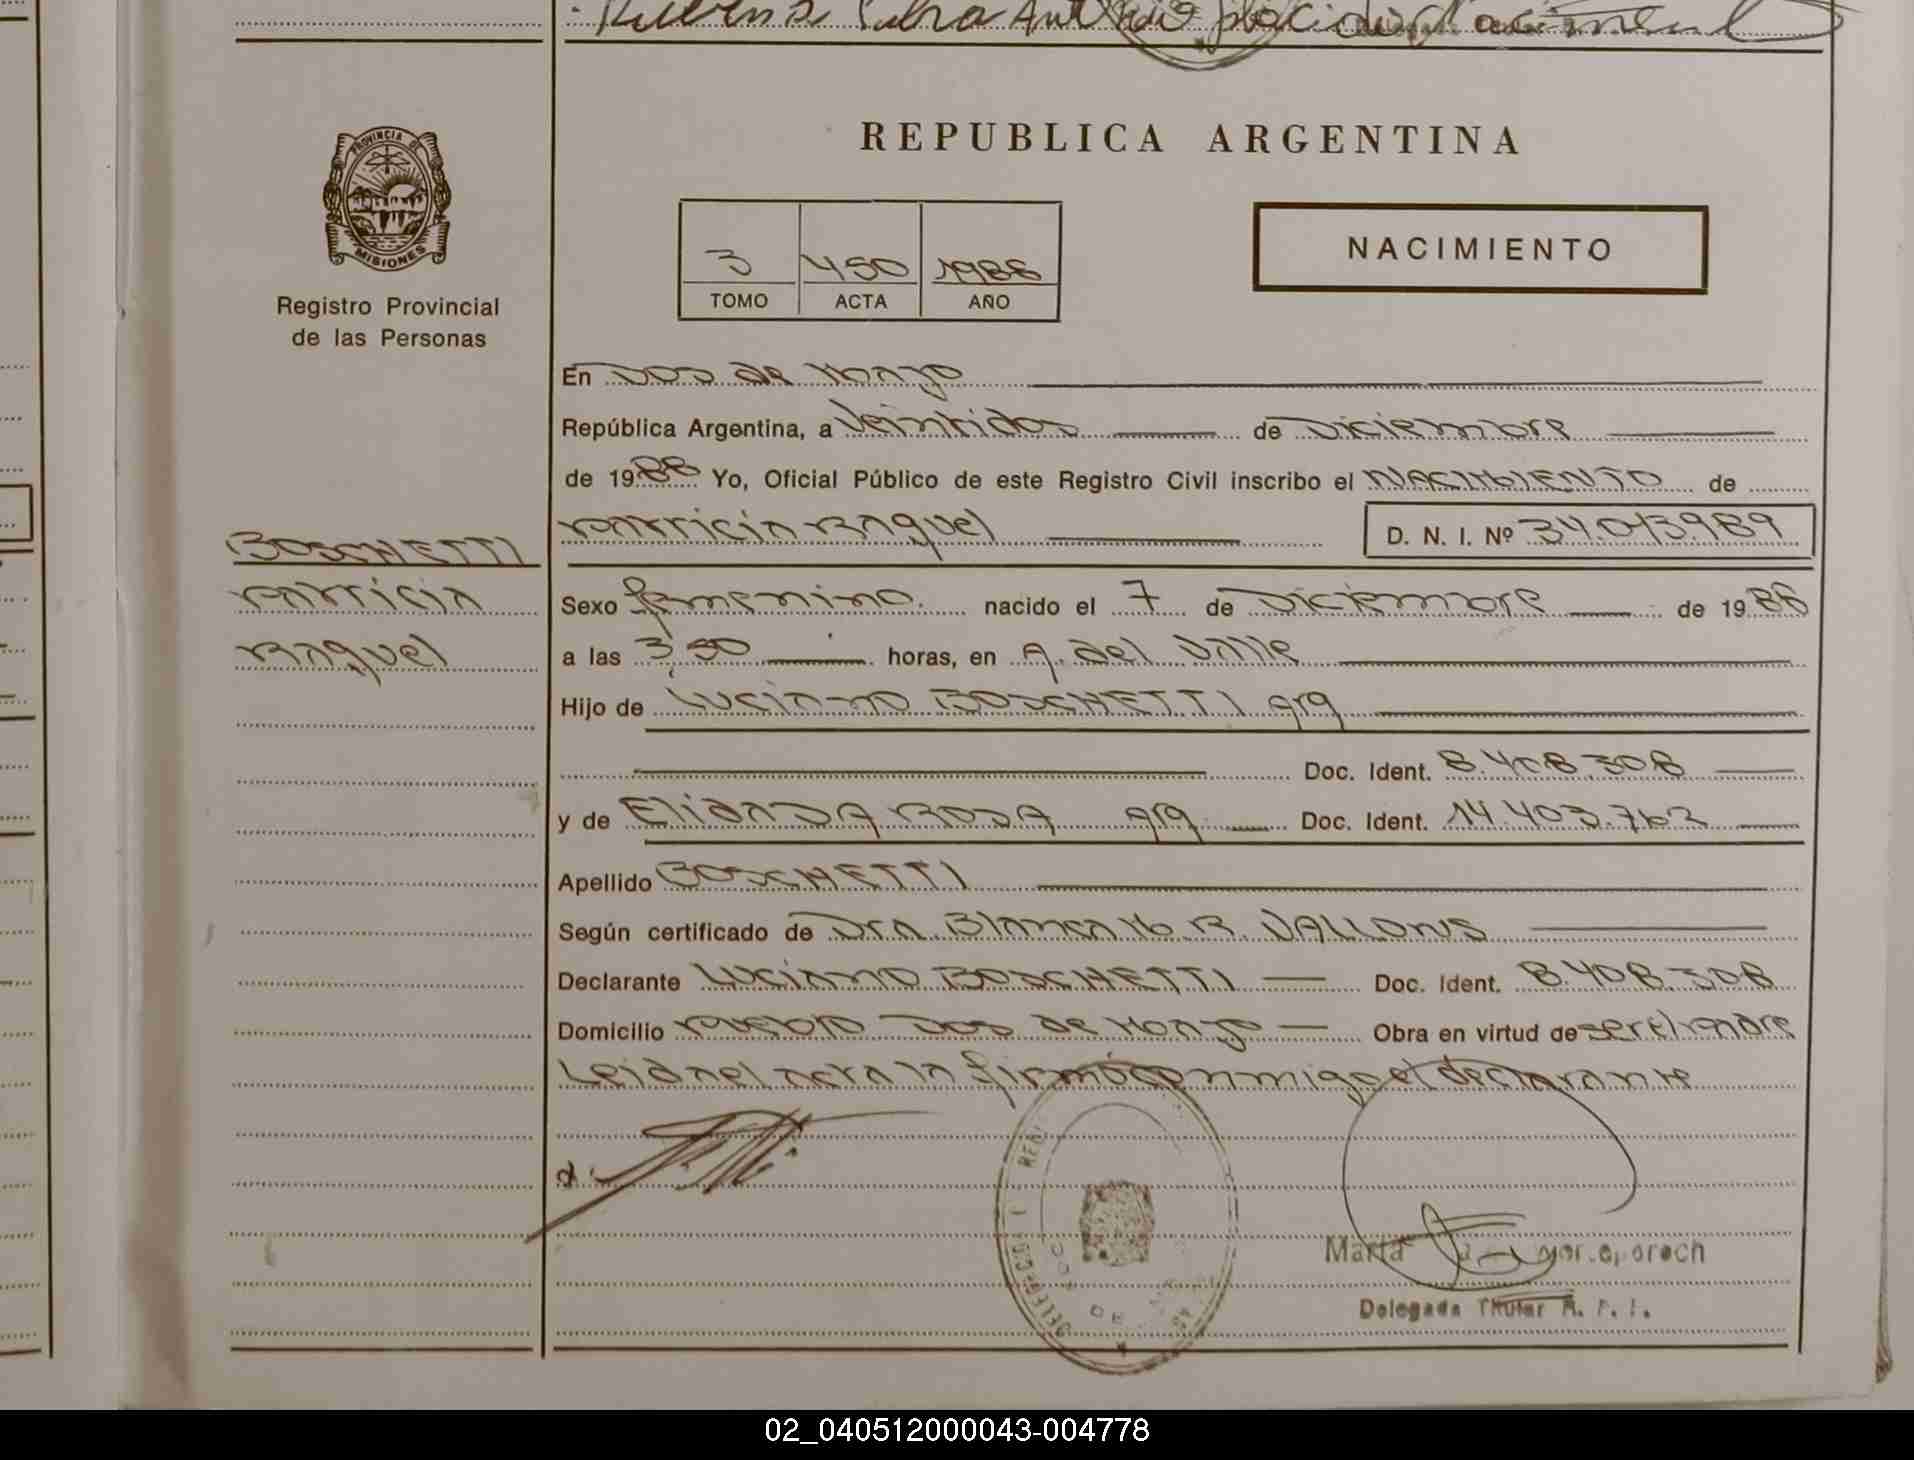 PROVINCIA DE
MISIONES
Registro Provincial
de las Personas
REPUBLICA ARGENTINA
3 450 1988
TOMO ACTA AÑO
NACIMIENTO
En Dos de Mayo
República Argentina, a Veintidos de Diciembre
de 1988 Yo, Oficial Público de este Registro Civil inscribo el NACIMIENTO de
Patricia Raquel D. N. I. Nº 34.013.989
BOSCHETTI
Patricia
Raquel
Sexo femenino. nacido el 7 de Diciembre de 1988
a las 3,50 horas, en A. del Valle
Hijo de Luciano BOSCHETTI arg
Doc. Ident. 8.408.308
y de Elida ROSA arg Doc. Ident. 14.403.762
Apellido BOSCHETTI
Según certificado de Dra. Blanca M. R. VALLONIS
Declarante Luciano BOSCHETTI Doc. Ident. 8.408.308
Domicilio Pueblo Dos de Mayo Obra en virtud de ser el padre
Leida el acta la firmó conmigo el declarante
Marta
Delegada Titular R. P. P.
02_040512000043-004778